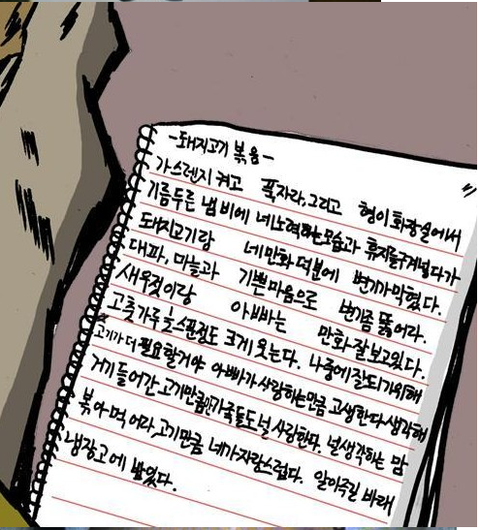 -돼지고기 볶음-
가스렌지 켜고 푹자라,그리고 형이 화장실에서
기름두른 냄비에 네노력하는모습과 휴지를구겨넣다가
돼지고기랑 네만화 덕분에 변기가막혔다.
대파, 마늘과 기쁜마음으로 변기좀 뚫어라.
새우젓이랑 아빠는 만화잘보고있다.
고춧가루 한스푼정도 크게 웃는다. 나중에잘되기위해
고기가 더 필요할거야 아빠가사랑하는만큼 고생한다생각해
거기 들어간 고기만큼 가족들도널 사랑한다. 널생각하는 맘
볶아먹어라,고기만큼 네가자랑스럽다. 알아주길 바래
냉장고에 놨었다.